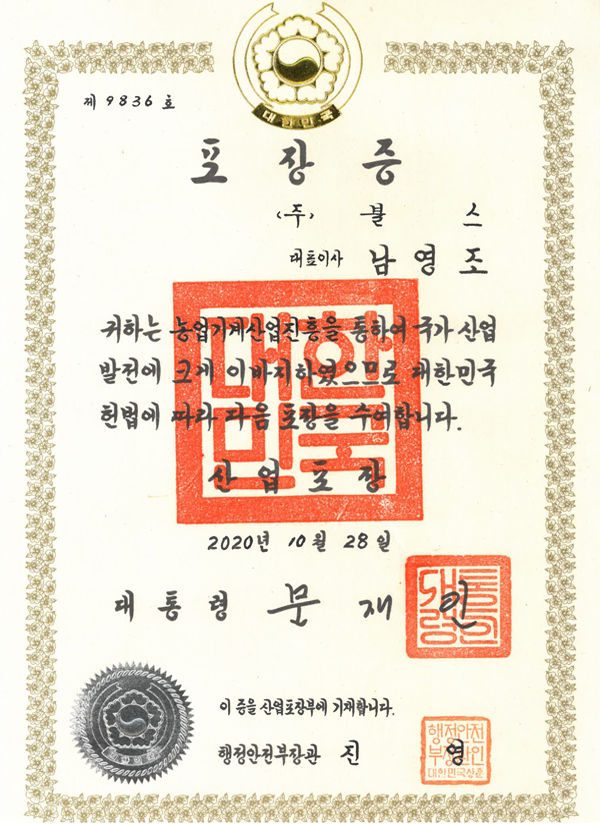 대한민국
제 9836 호
포장증
(주) 불스
대표이사 남영조
귀하는 농업기계산업진흥을 통하여 국가 산업
발전에 크게 이바지하였으므로 대한민국
헌법에 따라 다음 포장을 수여합니다.
대한민국
산업포장
2020년 10월 28일
대통령 문재인
대통령의인
이 증을 산업포장부에 기재합니다.
행정안전부장관 진영
행정안전
부장관인
대한민국상훈